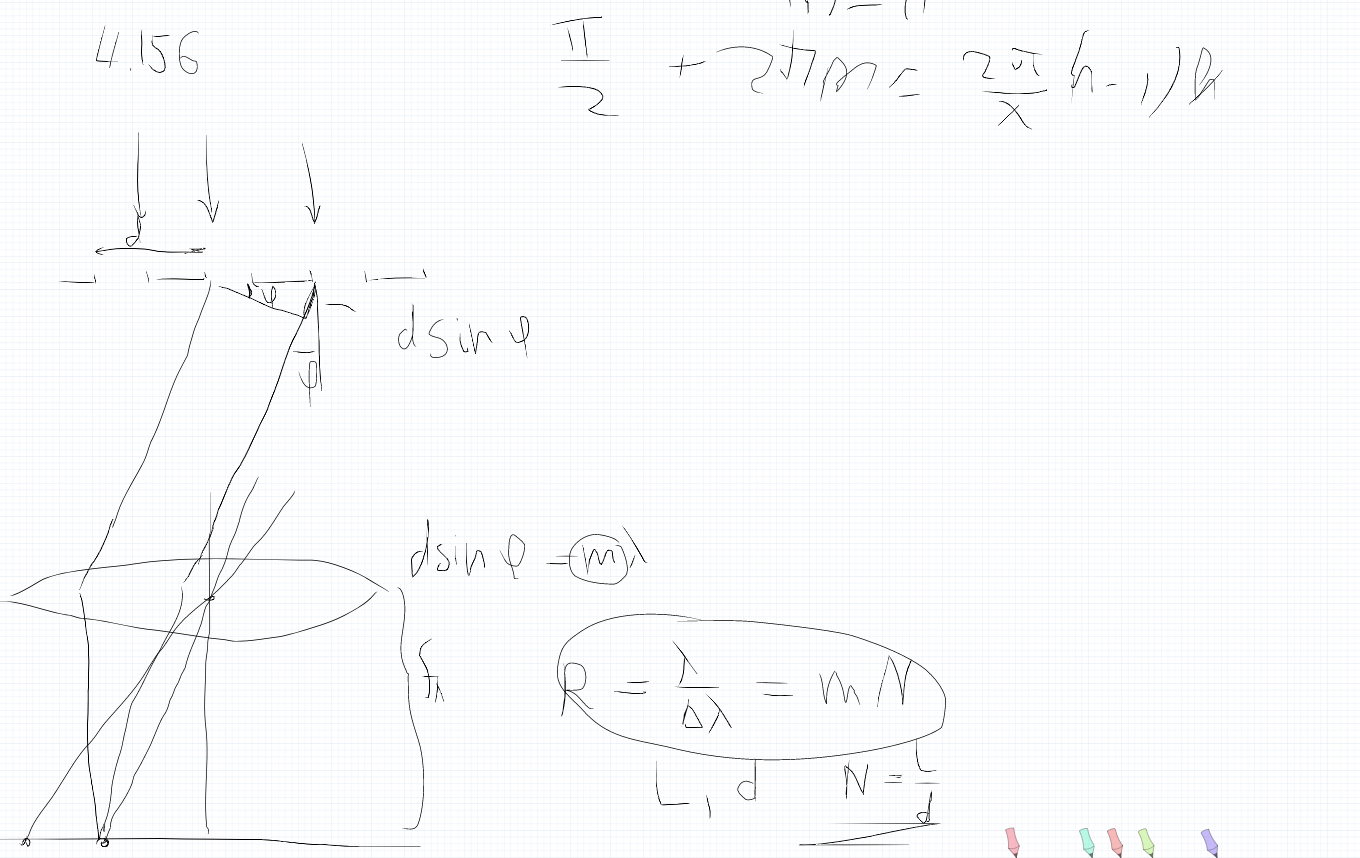 4.156
π/2 + 2πm = 2π/λ (n-1)h
d
φ
d sin φ
φ
d sin φ = mλ
f
R = λ/Δλ = mN
L, d
N = L/d